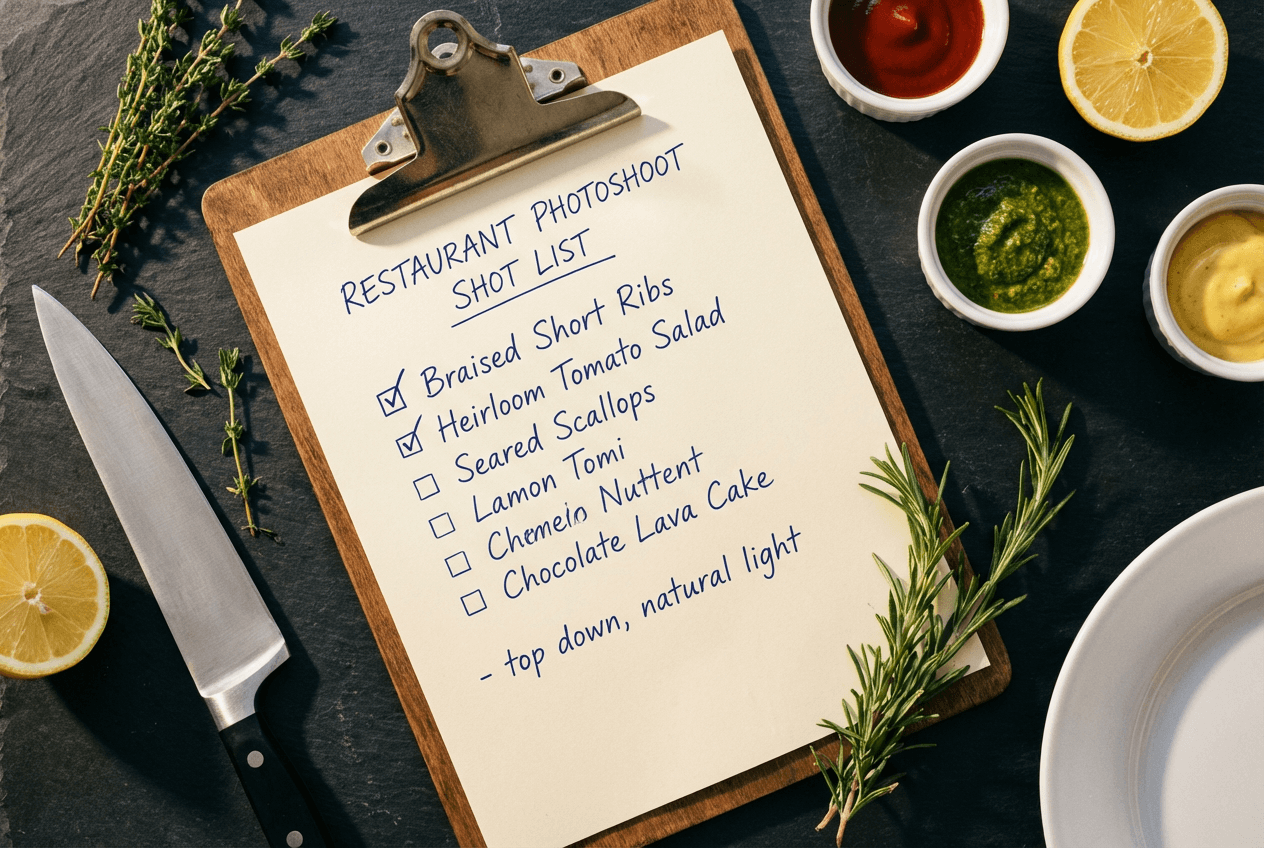 RESTAURANT PHOTOSHOOT
SHOT LIST
Braised Short Ribs
Heirloom Tomato Salad
Seared Scallops
Lamon Tomi
Nuttent
Chocolate Lava Cake
- top down, natural light